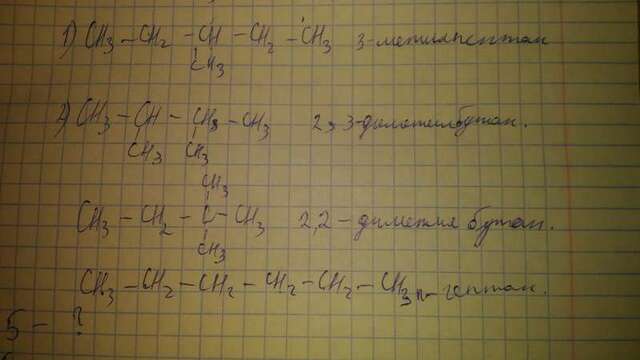 1) CH3 – CH2 – CH – CH2 – CH3 3-метилпентан
CH3
2) CH3 – CH – CH3 – CH3 2,3-диметилбутан.
CH3 CH3
CH3
CH3 – CH2 – C – CH3 2,2 – диметил бутан.
CH3
CH3 – CH2 – CH2 – CH2 – CH2 – CH3 n – гептан.
5 – ?